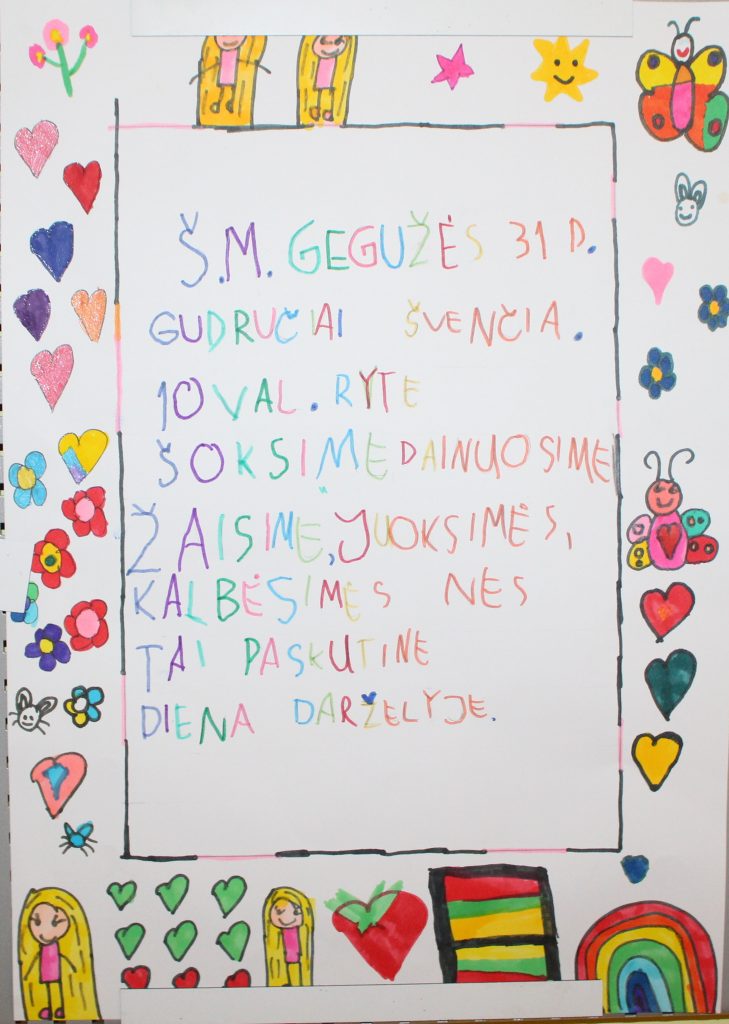 Š.M. GEGUŽĖS 31 D.
GUDRUČIAI ŠVENČIA.
10 VAL. RYTE
ŠOKSIME DAINUOSIME
ŽAISIME, JUOKSIMĖS,
KALBĖSIMĖS NĖS
TAI PASKUTINĖ
DIENA DARŽELYJE.